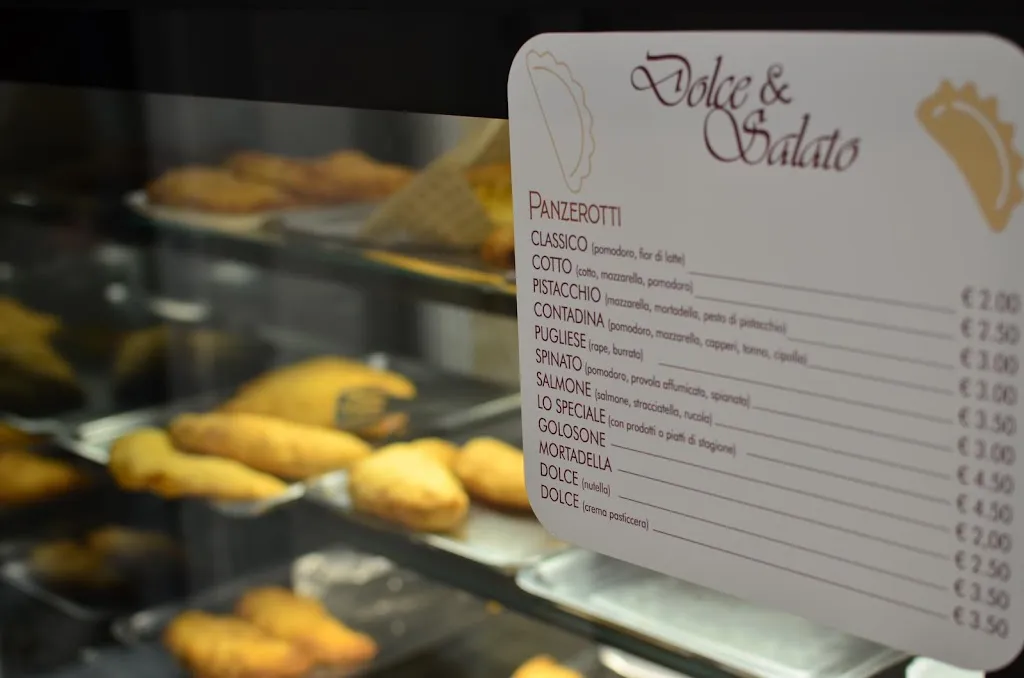 Dolce &
Salato
PANZEROTTI
CLASSICO (pomodoro, fior di latte) € 2.00
COTTO (cotto, mozzarella, pomodoro) € 2.50
PISTACCHIO (mozzarella, mortadella, pesto di pistacchio) € 3.00
CONTADINA (pomodoro, mozzarella, capperi, tonno, cipolla) € 3.00
PUGLIESE (rape, burrata) € 3.50
SPINATO (pomodoro, provola affumicata, spianata) € 3.00
SALMONE (salmone, stracciatella, rucola) € 4.50
LO SPECIALE (con prodotti o piatti di stagione) € 4.50
GOLOSONE € 2,00
MORTADELLA € 2.50
DOLCE (nutella) € 3.50
DOLCE (crema pasticcera) € 3.50